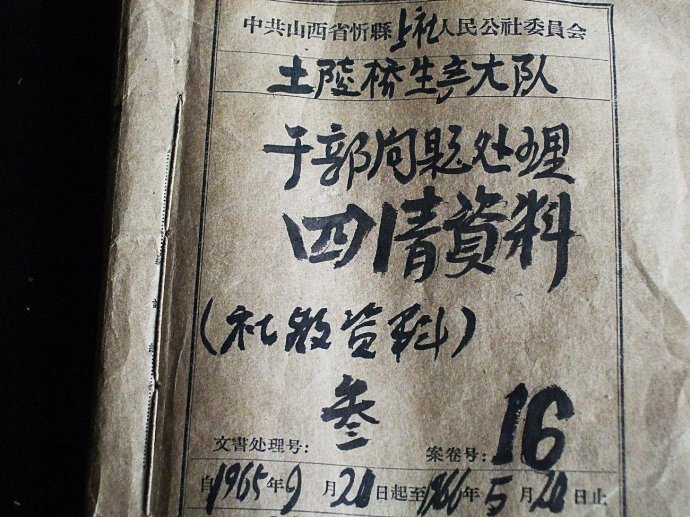 中共山西省忻縣上社人民公社委員会
土陵桥生产大队
干部问题处理
四清資料
(社教资料)
叁
文書处理号: 案卷号: 16
自1965年9月20日起至1966年5月20日止